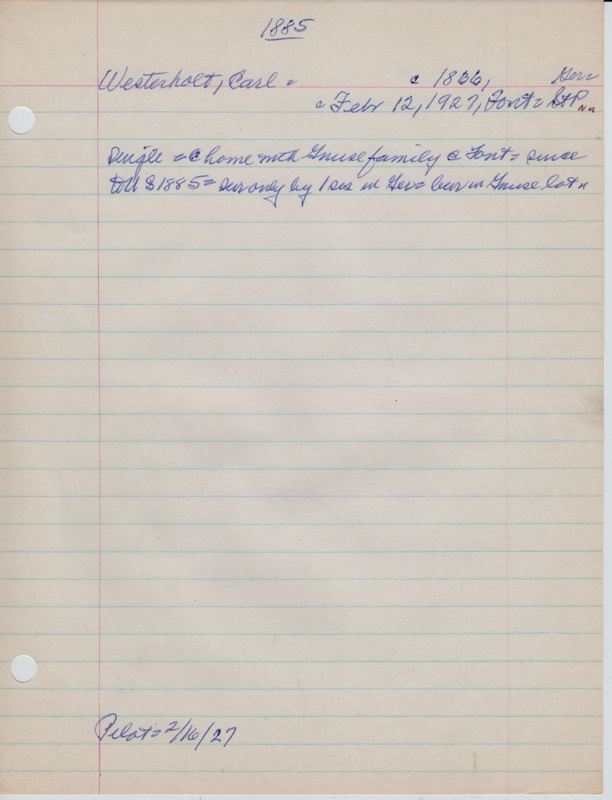 1885
Westerholt, Carl = c 1866, Ger=
c Febr 12, 1927, Font= St P
single = c home with Gnuse family c Font= since
to US 1885= sur only by 1 sis in Ger= bur in Gnuse lot
Pilot= 2/16/27